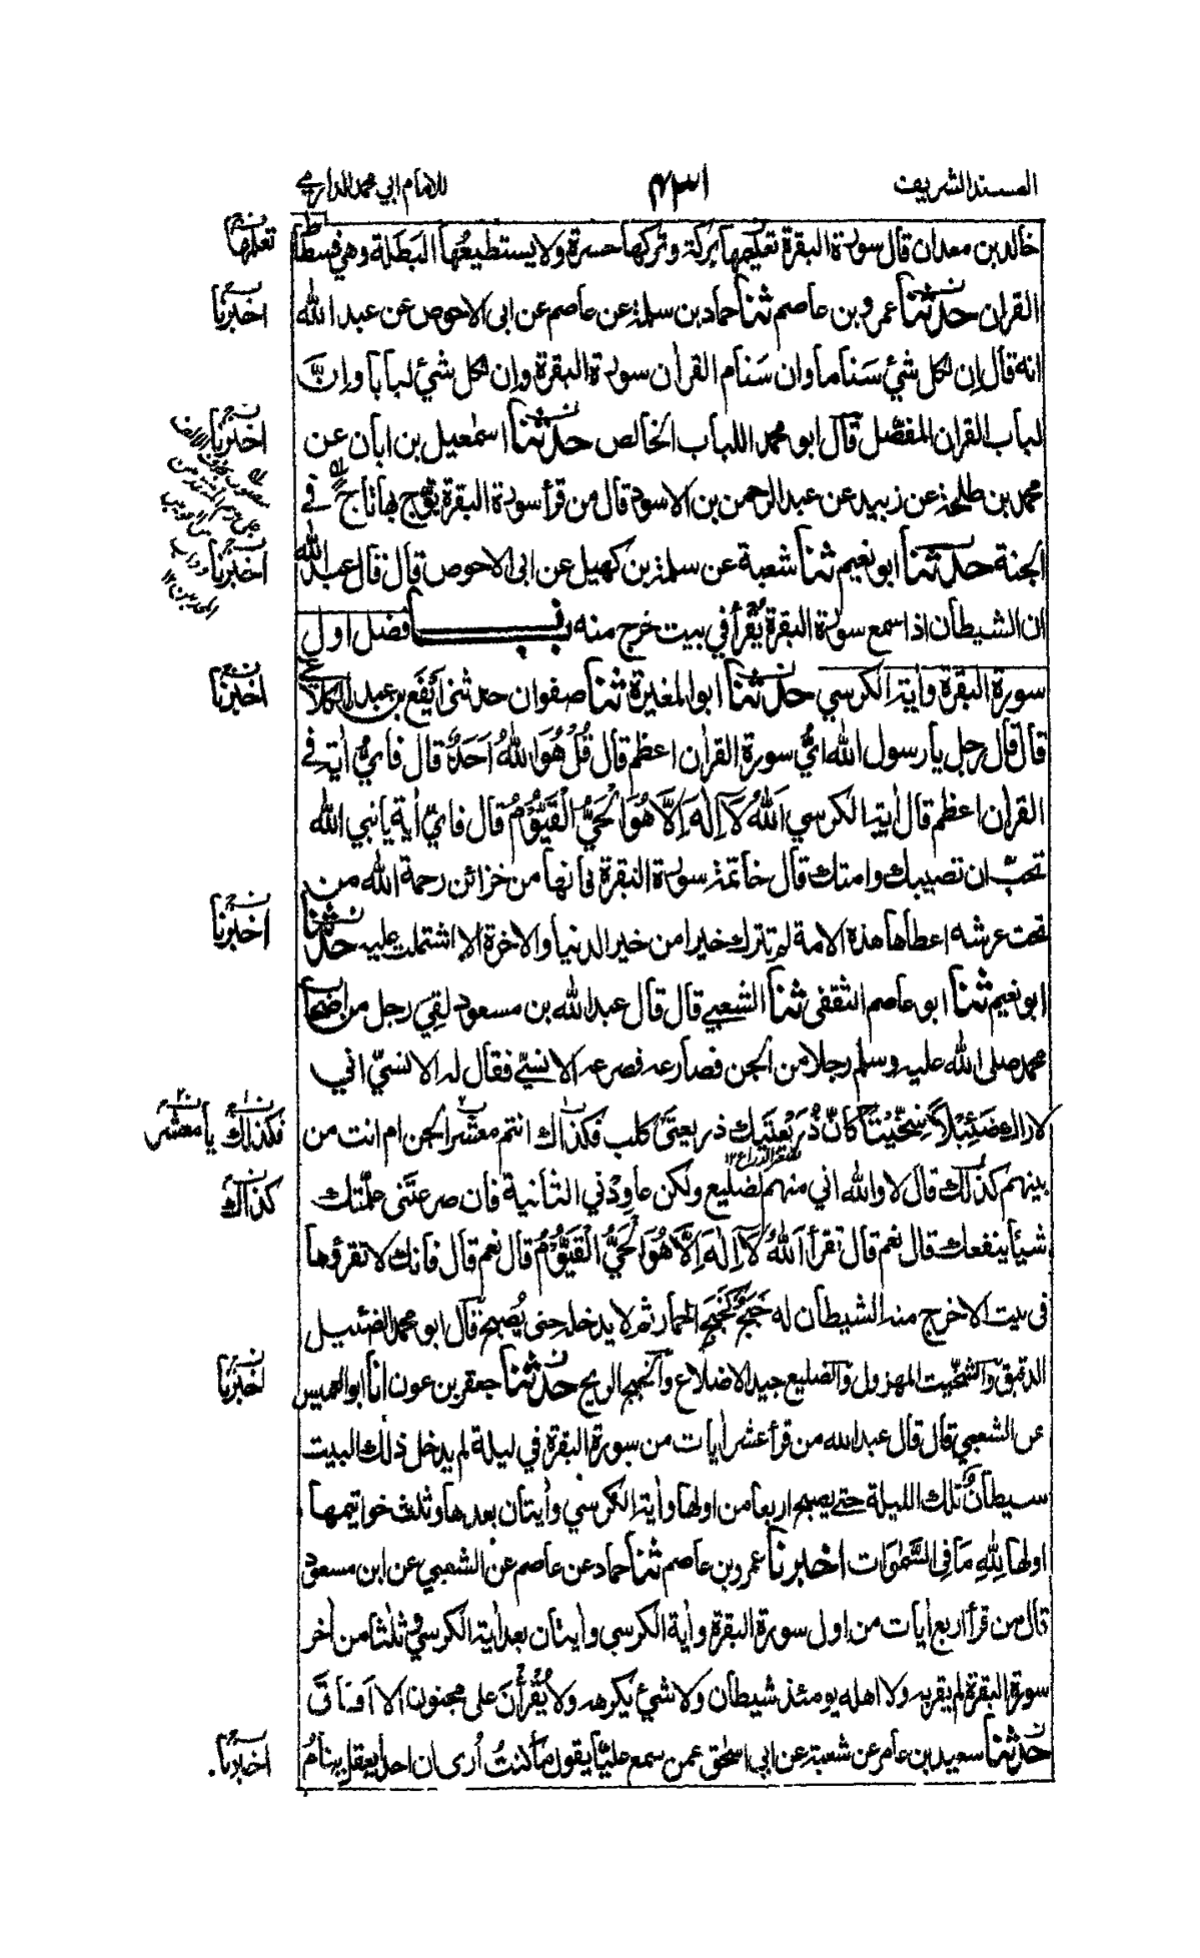 المسند الشريف
٤٣١
للامام ابي محمد الدارمي
خالد بن معدان قال سورة البقرة تعليمها بركة وتركها حسرة ولا يستطيعها البطلة وهي فسطاط
القران حدثنا عمرو بن عاصم ثنا حماد بن سلمة عن عاصم عن ابى الاحوص عن عبد الله
انه قال ان لكل شئ سَناما وان سَنام القران سورة البقرة وان لكل شئ لبابا وانّ
لباب القران المفصّل قال ابو محمد اللباب الخالص حدثنا اسمٰعيل بن ابان عن
محمد بن طلحة عن زبيد عن عبد الرحمن بن الاسود قال من قرأ سورة البقرة تُوّج بها تاج في
الجنة حدثنا ابو نعيم ثنا شعبة عن سلمة بن كهيل عن ابى الاحوص قال قال عبد الله
ان الشيطان اذا سمع سورة البقرة يُقرأ في بيت خرج منه باب فضل اول
سورة البقرة واٰية الكرسي حدثنا ابو المغيرة ثنا صفوان حدثنى اَيفَع بن عبد الكلاعي
قال قال رجل يا رسول الله ايُّ سورة القراٰن اعظم قال قُلْ هُوَ اللّٰهُ اَحَدٌ قال فايُّ اٰية في
القراٰن اعظم قال اٰية الكرسي اَللّٰهُ لَآ اِلٰهَ اِلَّا هُوَ الْحَيُّ الْقَيُّوْمُ قال فايّ اٰية يا نبي الله
تحبّ ان تصيبك وامتك قال خاتمة سورة البقرة فانها من خزائن رحمة الله من
تحت عرشه اعطاها هذه الامة لم تترك خيرا من خير الدنيا والاخرة الا اشتملت عليه حدثنا
ابو نعيم ثنا ابو عاصم الثقفى ثنا الشعبي قال قال عبد الله بن مسعود لقِيَ رجل من اصحاب
محمد صلى الله عليه وسلم رجلا من الجن فصارعه فصرعه الانسيّ فقال له الانسيّ اني
لاراك ضَئِيْلاً شخِّيْتاً كانّ ذُرَيْعتَيك ذريعتَى كلب فكذاك انتم معشر الجن ام انت من
بينهم كذلك قال لا والله اني منهم لضليع ولكن عاوِدْني الثانية فان صرعتَنى علّمتك
شيأ ينفعك قال نعم قال تقرأ اَللّٰهُ لَآ اِلٰهَ اِلَّا هُوَ الْحَيُّ الْقَيُّوْمُ قال نعم قال فانك لا تقرؤها
فى بيت الا خرج منه الشيطان له خَبَجٌ كَخَبَجِ الحمار ثم لا يدخله حتى يُصبح قال ابو محمد الضئيل
الدقيق والشخّيت المهزول والضليع جيد الاضلاع والخبج الريح حدثنا جعفر بن عون انا ابو العميس
عن الشعبي قال قال عبد الله من قرأ عشر اٰيات من سورة البقرة في ليلة لم يدخل ذٰلك البيت
شيطانٌ تلك الليلة حتى يصبح اربعا من اولها واٰية الكرسي واٰيتان بعدها وثلٰث خواتيمها
اولها لِلّٰهِ مَا فِى السَّمٰوَات اخبرنا عمرو بن عاصم ثنا حماد عن عاصم عن الشعبي عن ابن مسعود
قال من قرأ اربع اٰيات من اول سورة البقرة واٰية الكرسي واٰيتان بعد اٰية الكرسي وثلٰثا من اٰخر
سورة البقرة لم يقربه ولا اهله يومئذ شيطان ولا شئ يكرهه ولا يُقْرأْنَ على مجنون الا افاق
حدثنا سعيد بن عامر عن شعبة عن ابي اسحٰق عمن سمع عليًّا يقول ما كنتُ اُرى ان احدا يعقل ينامُ
تعلمها
اخبرنا
اخبرنا
اخبرنا
اخبرنا
اخبرنا
فكذلك
يا معشر
كذاك
اخبرنا
اخبرنا